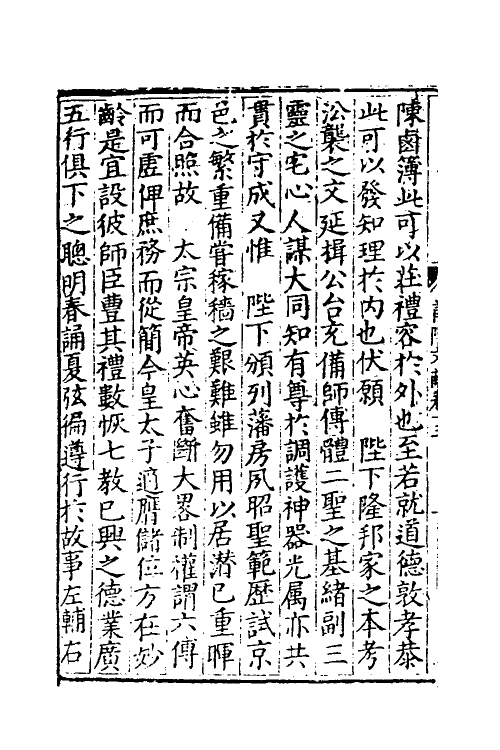 陳鹵簿此可以莊禮容於外也至若就道德敦孝恭
此可以發知理於内也伏願 陛下隆邦家之本考
㳂襲之文延揖公台充備師傅體二聖之基緒副三
靈之宅心人謀大同知有尊於調護神器光属亦共
貫於守成又惟 陛下頒列藩房夙昭聖範歷試京
邑之繁重備甞稼穡之艱難雖勿用以居潜已重暉
而合照故 太宗皇帝英心奮斷大畧制權謂六傅
而可虚俾庶務而從簡今皇太子適膺儲位方在妙
齡是宜設彼師臣豊其禮數恢七教已興之德業廣
五行俱下之聰明春誦夏弦徧遵行於故事左輔右